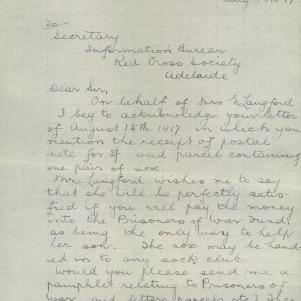 To
Secretary
Information Bureau
Red Cross Society
Adelaide
Dear Sir,
On behalf of Mrs E. Langford
I beg to acknowledge your letter
of August 15th, 1917 in which you
mention the receipt of postal
note for 5/- and parcel containing
one pair of sox.
Mrs. Langford wishes me to say
that she will be perfectly satis-
fied if you will pay the money
into the Prisoners of War Fund,
as being the only way to help
her son. The sox may be hand-
ed in to any sock club.
Would you please send me a
pamphlet relating to Prisoners of
war and letters parcels etc